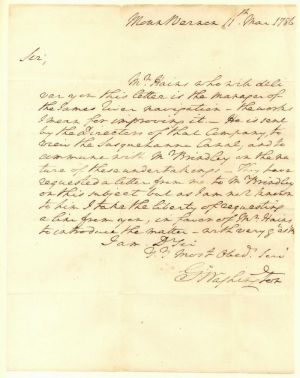 Mount Vernon 11th Mar 1786
Sir,
Mr Hains who will deli
ver you this letter is the manager of
the James River navigation - the works
I mean for improving it - He is sent
by the Directors of that Company, to
view the Susquehanna Canal, and to
commune with Mr Brindley on the na
ture of these undertakings - They have
requested a letter from me to Mr Brindley
on this subject but as I am not known
to him I take the liberty of requesting
a line from you, in favor of Mr Hains
to introduce the matter - with very gt esteem
I am Dr Sir
Yr Most Obedt Servt
Go Washington